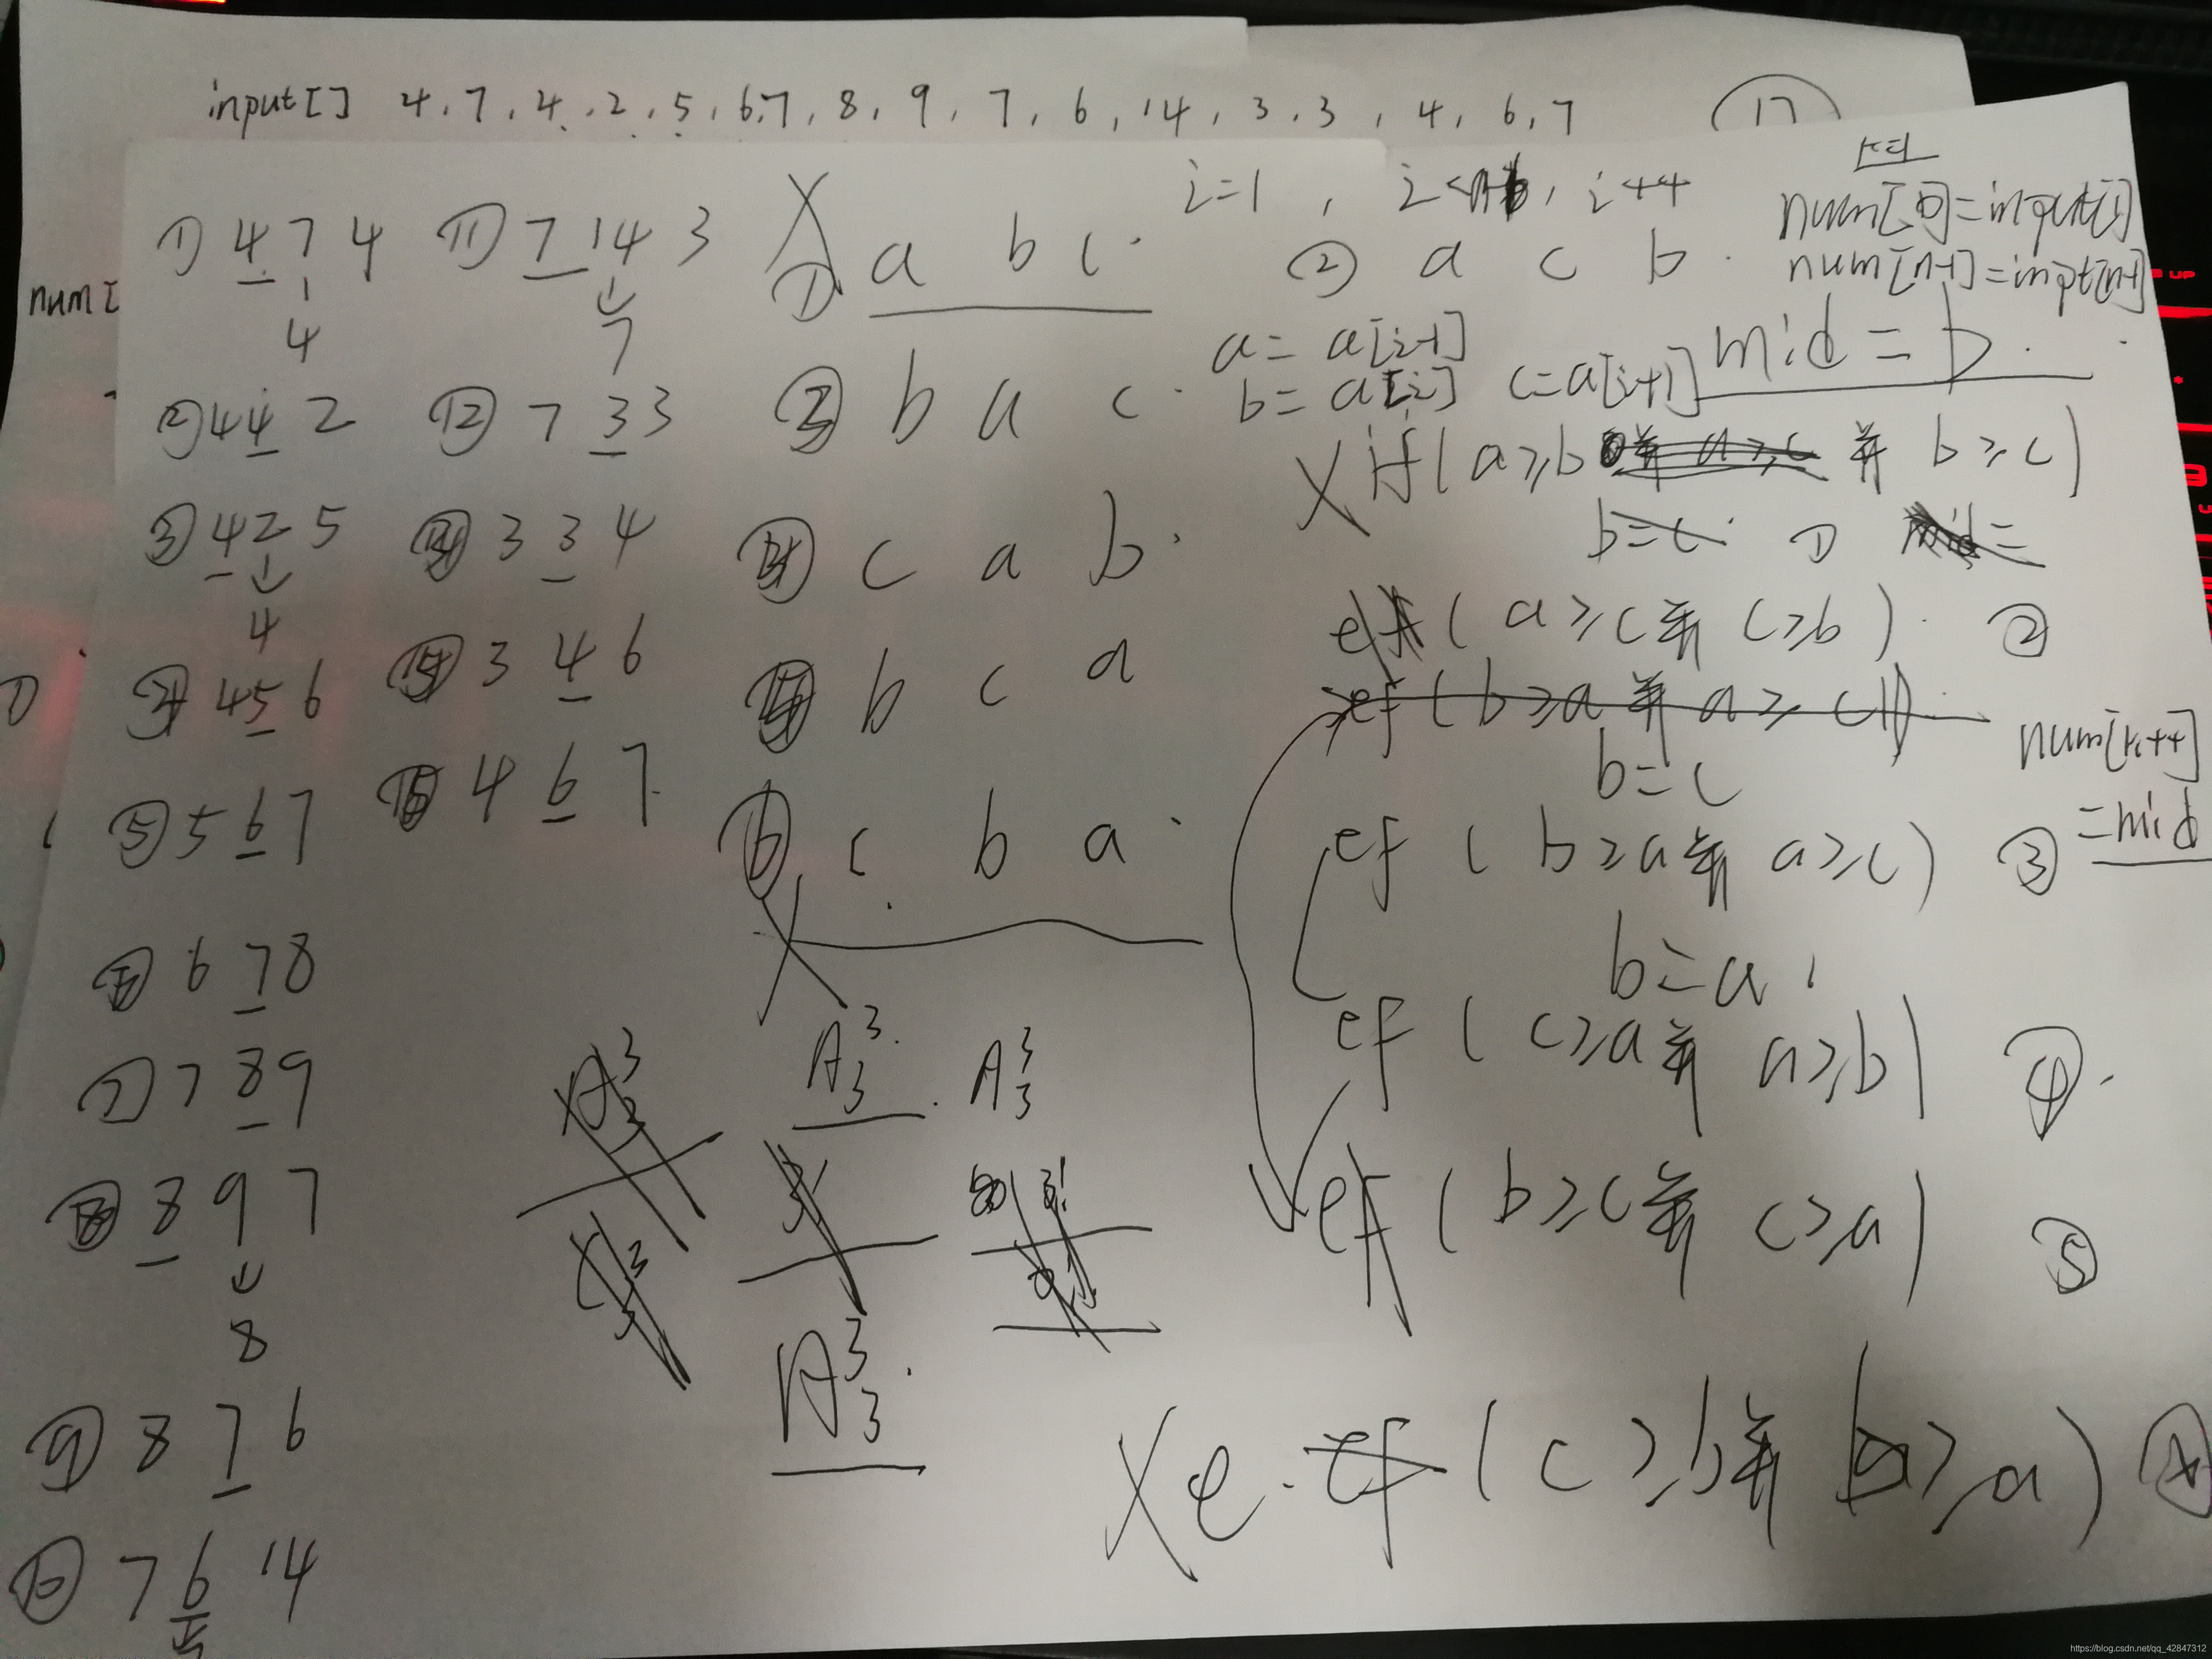 input[] 4,7,4,2,5,6,7,8,9,7,6,14,3,3,4,6,7 17
num[
① 4 7 4
4
② 4 4 2
③ 4 2 5
4
4 5 6
⑤ 5 6 7
6 7 8
⑦ 7 8 9
⑧ 8 9 7
8
⑨ 8 7 6
⑩ 7 6 14
⑪ 7 14 3
7
⑫ 7 3 3
3 3 4
3 4 6
4 6 7
① a b c
③ b a c
c a b
b c a
⑥ c b a
A 3 3
A 3 3
A 3 3
i=1, i<n, i++
② a c b
a = a[i-1]
b = a[i] c=a[i+1]
k=1
num[0]=input[i]
num[n-1]=inpt[n-1]
mid = b
if(a≥b 并 b≥c)
b=c ① mid=
ef(a≥c并 c≥b) ②
ef(b≥a 并 a≥c)
b=c
num[k++]
=mid
ef(b≥a并 a≥c) ③
b=a
ef(c≥a并 a≥b) ④
ef(b≥c并 c≥a) ⑤
e ef(c≥b并 b≥a)
https://blog.csdn.net/qq_42847312